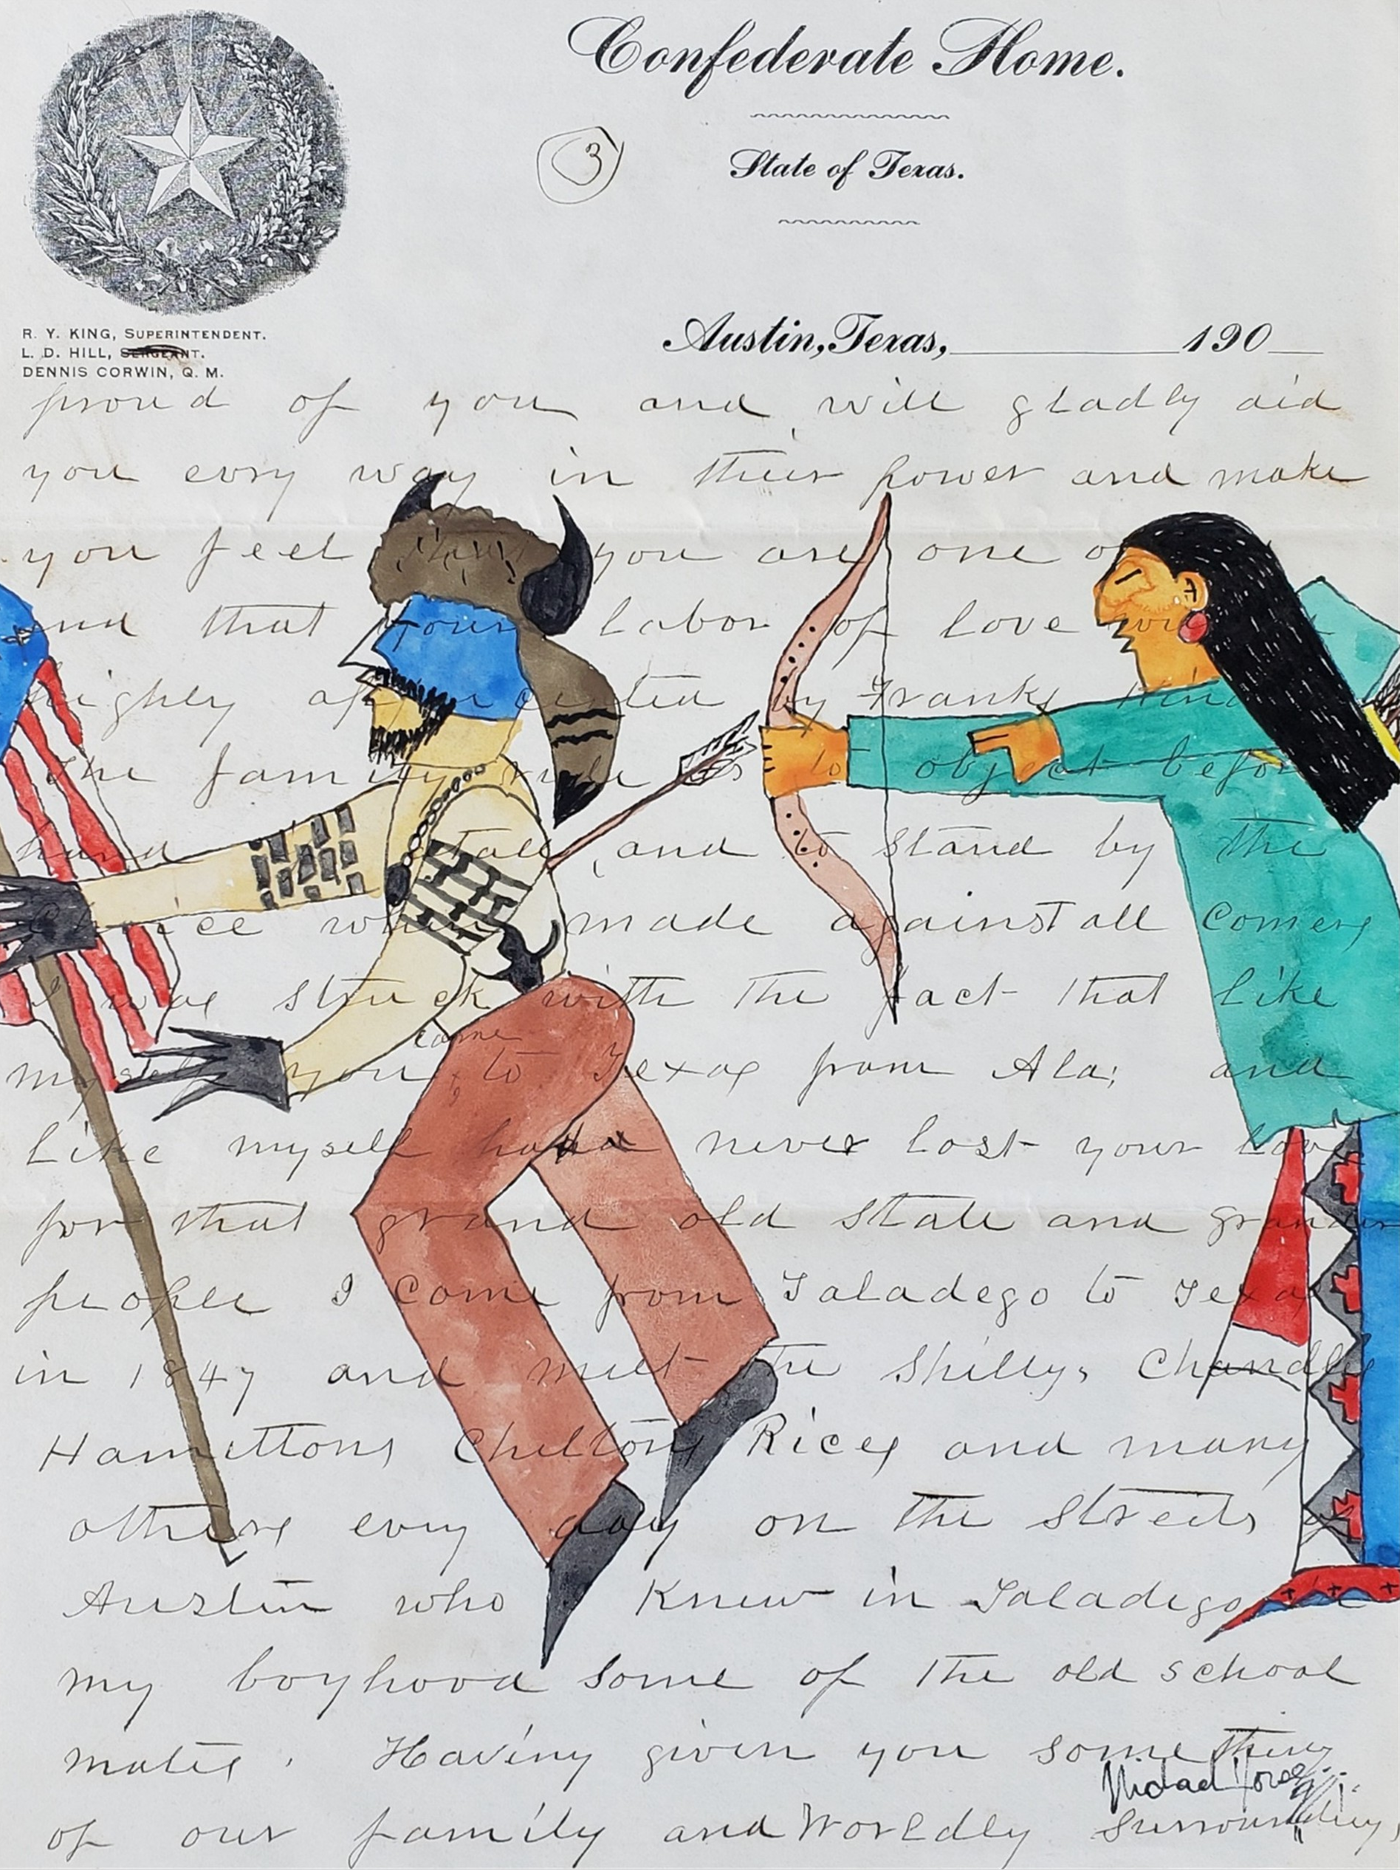 Confederate Home.
3
State of Texas.
R. Y. KING, SUPERINTENDENT.
L. D. HILL, SERGEANT.
DENNIS CORWIN, Q. M.
Austin, Texas, 190
proud of you and will gladly aid
you evry way in their power and make
you feel that you are one of
and that your labor of love will
highly appreciated by Franks kind
The family rule is to object before
hand total, and to stand by the
choice when made against all comers
I was struck with the fact that like
came
myself you to Texas from Ala; and
like myself have never lost your love
for that grand old State and grander
people I come from Taladego to Texas
in 1847 and meet the Shelly, Chandler
Hamittons Chiltons Rices and many
others evry day on the Streets of
Austin who Knew in Taladego
my boyhood some of the old school
mates. Having given you something
Michael Horse
of our family and Worldly Surroundings,